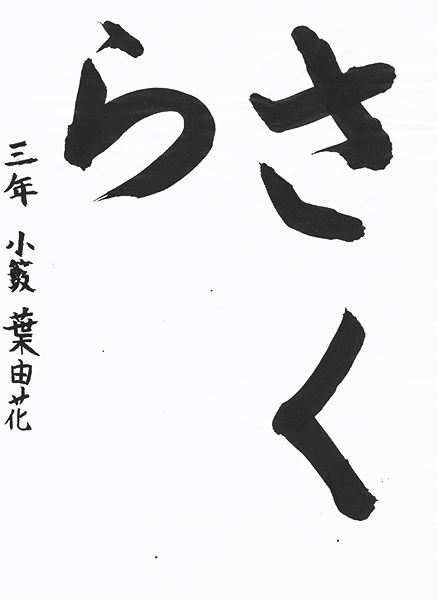 さく
ら
三年 小籔 葉由花